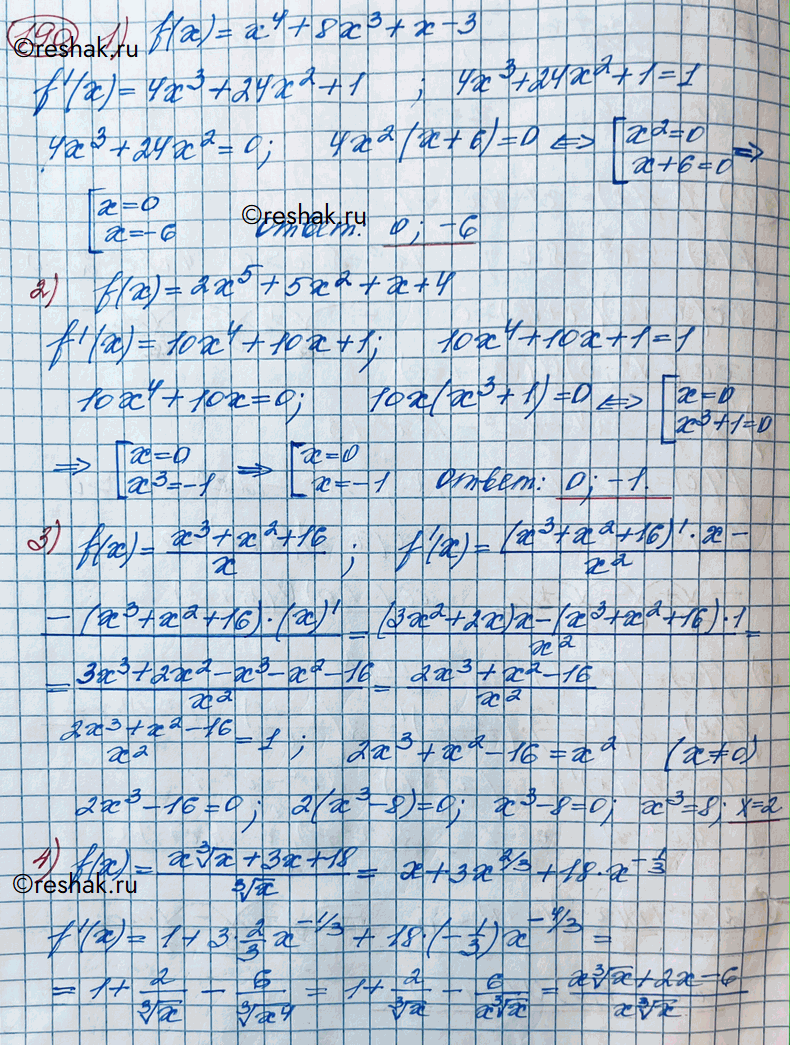 190 1) f(x) = x⁴ + 8x³ + x - 3
©reshak.ru
f'(x) = 4x³ + 24x² + 1 ; 4x³ + 24x² + 1 = 1
4x³ + 24x² = 0; 4x²(x + 6) = 0 <=> [x² = 0 =>
x + 6 = 0
[x = 0
x = -6 Ответ: 0; -6
©reshak.ru
2) f(x) = 2x⁵ + 5x² + x + 4
f'(x) = 10x⁴ + 10x + 1; 10x⁴ + 10x + 1 = 1
10x⁴ + 10x = 0; 10x(x³ + 1) = 0 <=> [x = 0
x³ + 1 = 0
=> [x = 0 => [x = 0
x³ = -1 x = -1 Ответ: 0; -1.
3) f(x) = (x³ + x² + 16)/x ; f'(x) = ((x³ + x² + 16)' · x -)/x²
(- (x³ + x² + 16) · (x)')/ = ((3x² + 2x)x - (x³ + x² + 16) · 1)/x² =
= (3x³ + 2x² - x³ - x² - 16)/x² = (2x³ + x² - 16)/x²
(2x³ + x² - 16)/x² = 1 ; 2x³ + x² - 16 = x² (x ≠ 0)
2x³ - 16 = 0; 2(x³ - 8) = 0; x³ - 8 = 0; x³ = 8; x = 2
4) f(x) = (x∛x + 3x + 18)/∛x = x + 3x^(2/3) + 18 · x^(-1/3)
©reshak.ru
f'(x) = 1 + 3 · 2/3 x^(-1/3) + 18 · (-1/3) x^(-4/3) =
= 1 + 2/∛x - 6/∛x⁴ = 1 + 2/∛x - 6/(x∛x) = (x∛x + 2x - 6)/(x∛x)